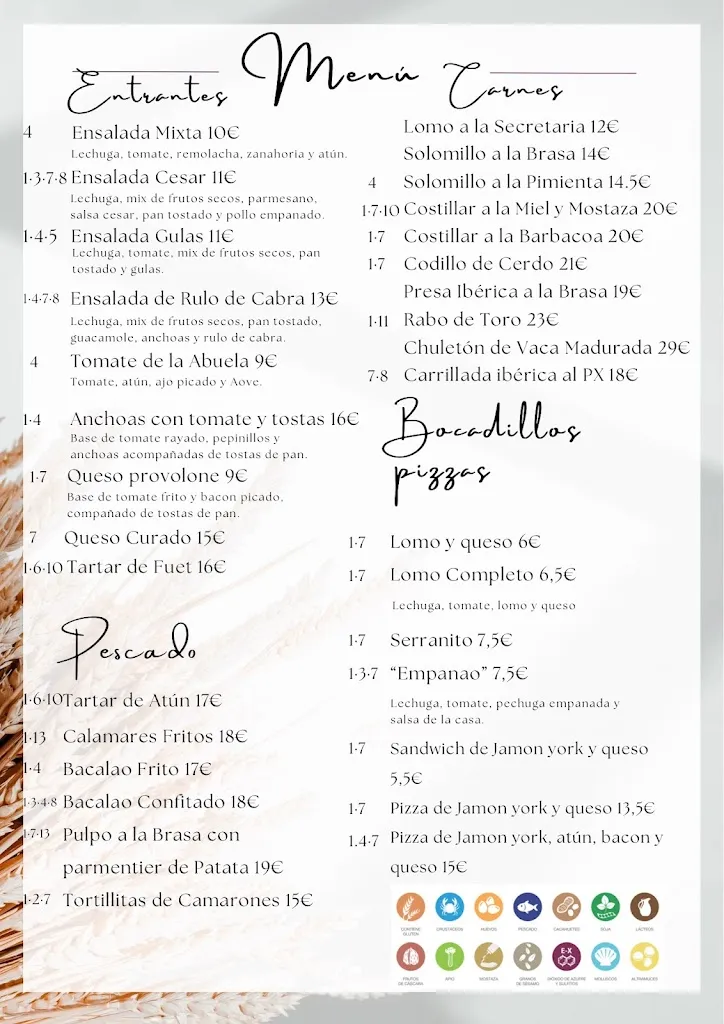 Menú
Entrantes
4 Ensalada Mixta 10€
Lechuga, tomate, remolacha, zanahoria y atún.
1·3·7·8 Ensalada Cesar 11€
Lechuga, mix de frutos secos, parmesano,
salsa cesar, pan tostado y pollo empanado.
1·4·5 Ensalada Gulas 11€
Lechuga, tomate, mix de frutos secos, pan
tostado y gulas.
1·4·7·8 Ensalada de Rulo de Cabra 13€
Lechuga, mix de frutos secos, pan tostado,
guacamole, anchoas y rulo de cabra.
4 Tomate de la Abuela 9€
Tomate, atún, ajo picado y Aove.
1·4 Anchoas con tomate y tostas 16€
Base de tomate rayado, pepinillos y
anchoas acompañadas de tostas de pan.
1·7 Queso provolone 9€
Base de tomate frito y bacon picado,
compañado de tostas de pan.
7 Queso Curado 15€
1·6·10 Tartar de Fuet 16€
Pescado
1·6·10 Tartar de Atún 17€
1·13 Calamares Fritos 18€
1·4 Bacalao Frito 17€
1·3·4·8 Bacalao Confitado 18€
1·7·13 Pulpo a la Brasa con
parmentier de Patata 19€
1·2·7 Tortillitas de Camarones 15€
Carnes
Lomo a la Secretaria 12€
Solomillo a la Brasa 14€
4 Solomillo a la Pimienta 14.5€
1·7·10 Costillar a la Miel y Mostaza 20€
1·7 Costillar a la Barbacoa 20€
1·7 Codillo de Cerdo 21€
Presa Ibérica a la Brasa 19€
1·11 Rabo de Toro 23€
Chuletón de Vaca Madurada 29€
7·8 Carrillada ibérica al PX 18€
Bocadillos
pizzas
1·7 Lomo y queso 6€
1·7 Lomo Completo 6,5€
Lechuga, tomate, lomo y queso
1·7 Serranito 7,5€
1·3·7 “Empanao” 7,5€
Lechuga, tomate, pechuga empanada y
salsa de la casa.
1·7 Sandwich de Jamon york y queso
5,5€
1·7 Pizza de Jamon york y queso 13,5€
1.4·7 Pizza de Jamon york, atún, bacon y
queso 15€
CONTIENE GLUTEN CRUSTÁCEOS HUEVOS PESCADO CACAHUETES SOJA LÁCTEOS
E-X
FRUTOS DE CÁSCARA APIO MOSTAZA GRANOS DE SÉSAMO DIÓXIDO DE AZUFRE Y SULFITOS MOLUSCOS ALTRAMUCES